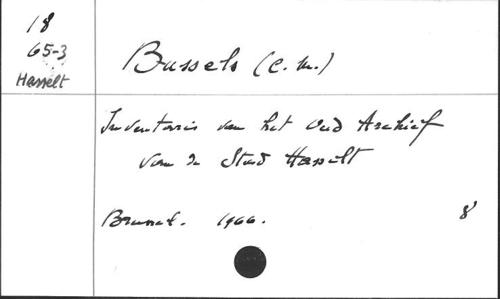 18
65-3
Hasselt
Bussels (C. M.)
Inventaris van het Oud Archief
van de Stad Hasselt
Brussel. 1966. 8°